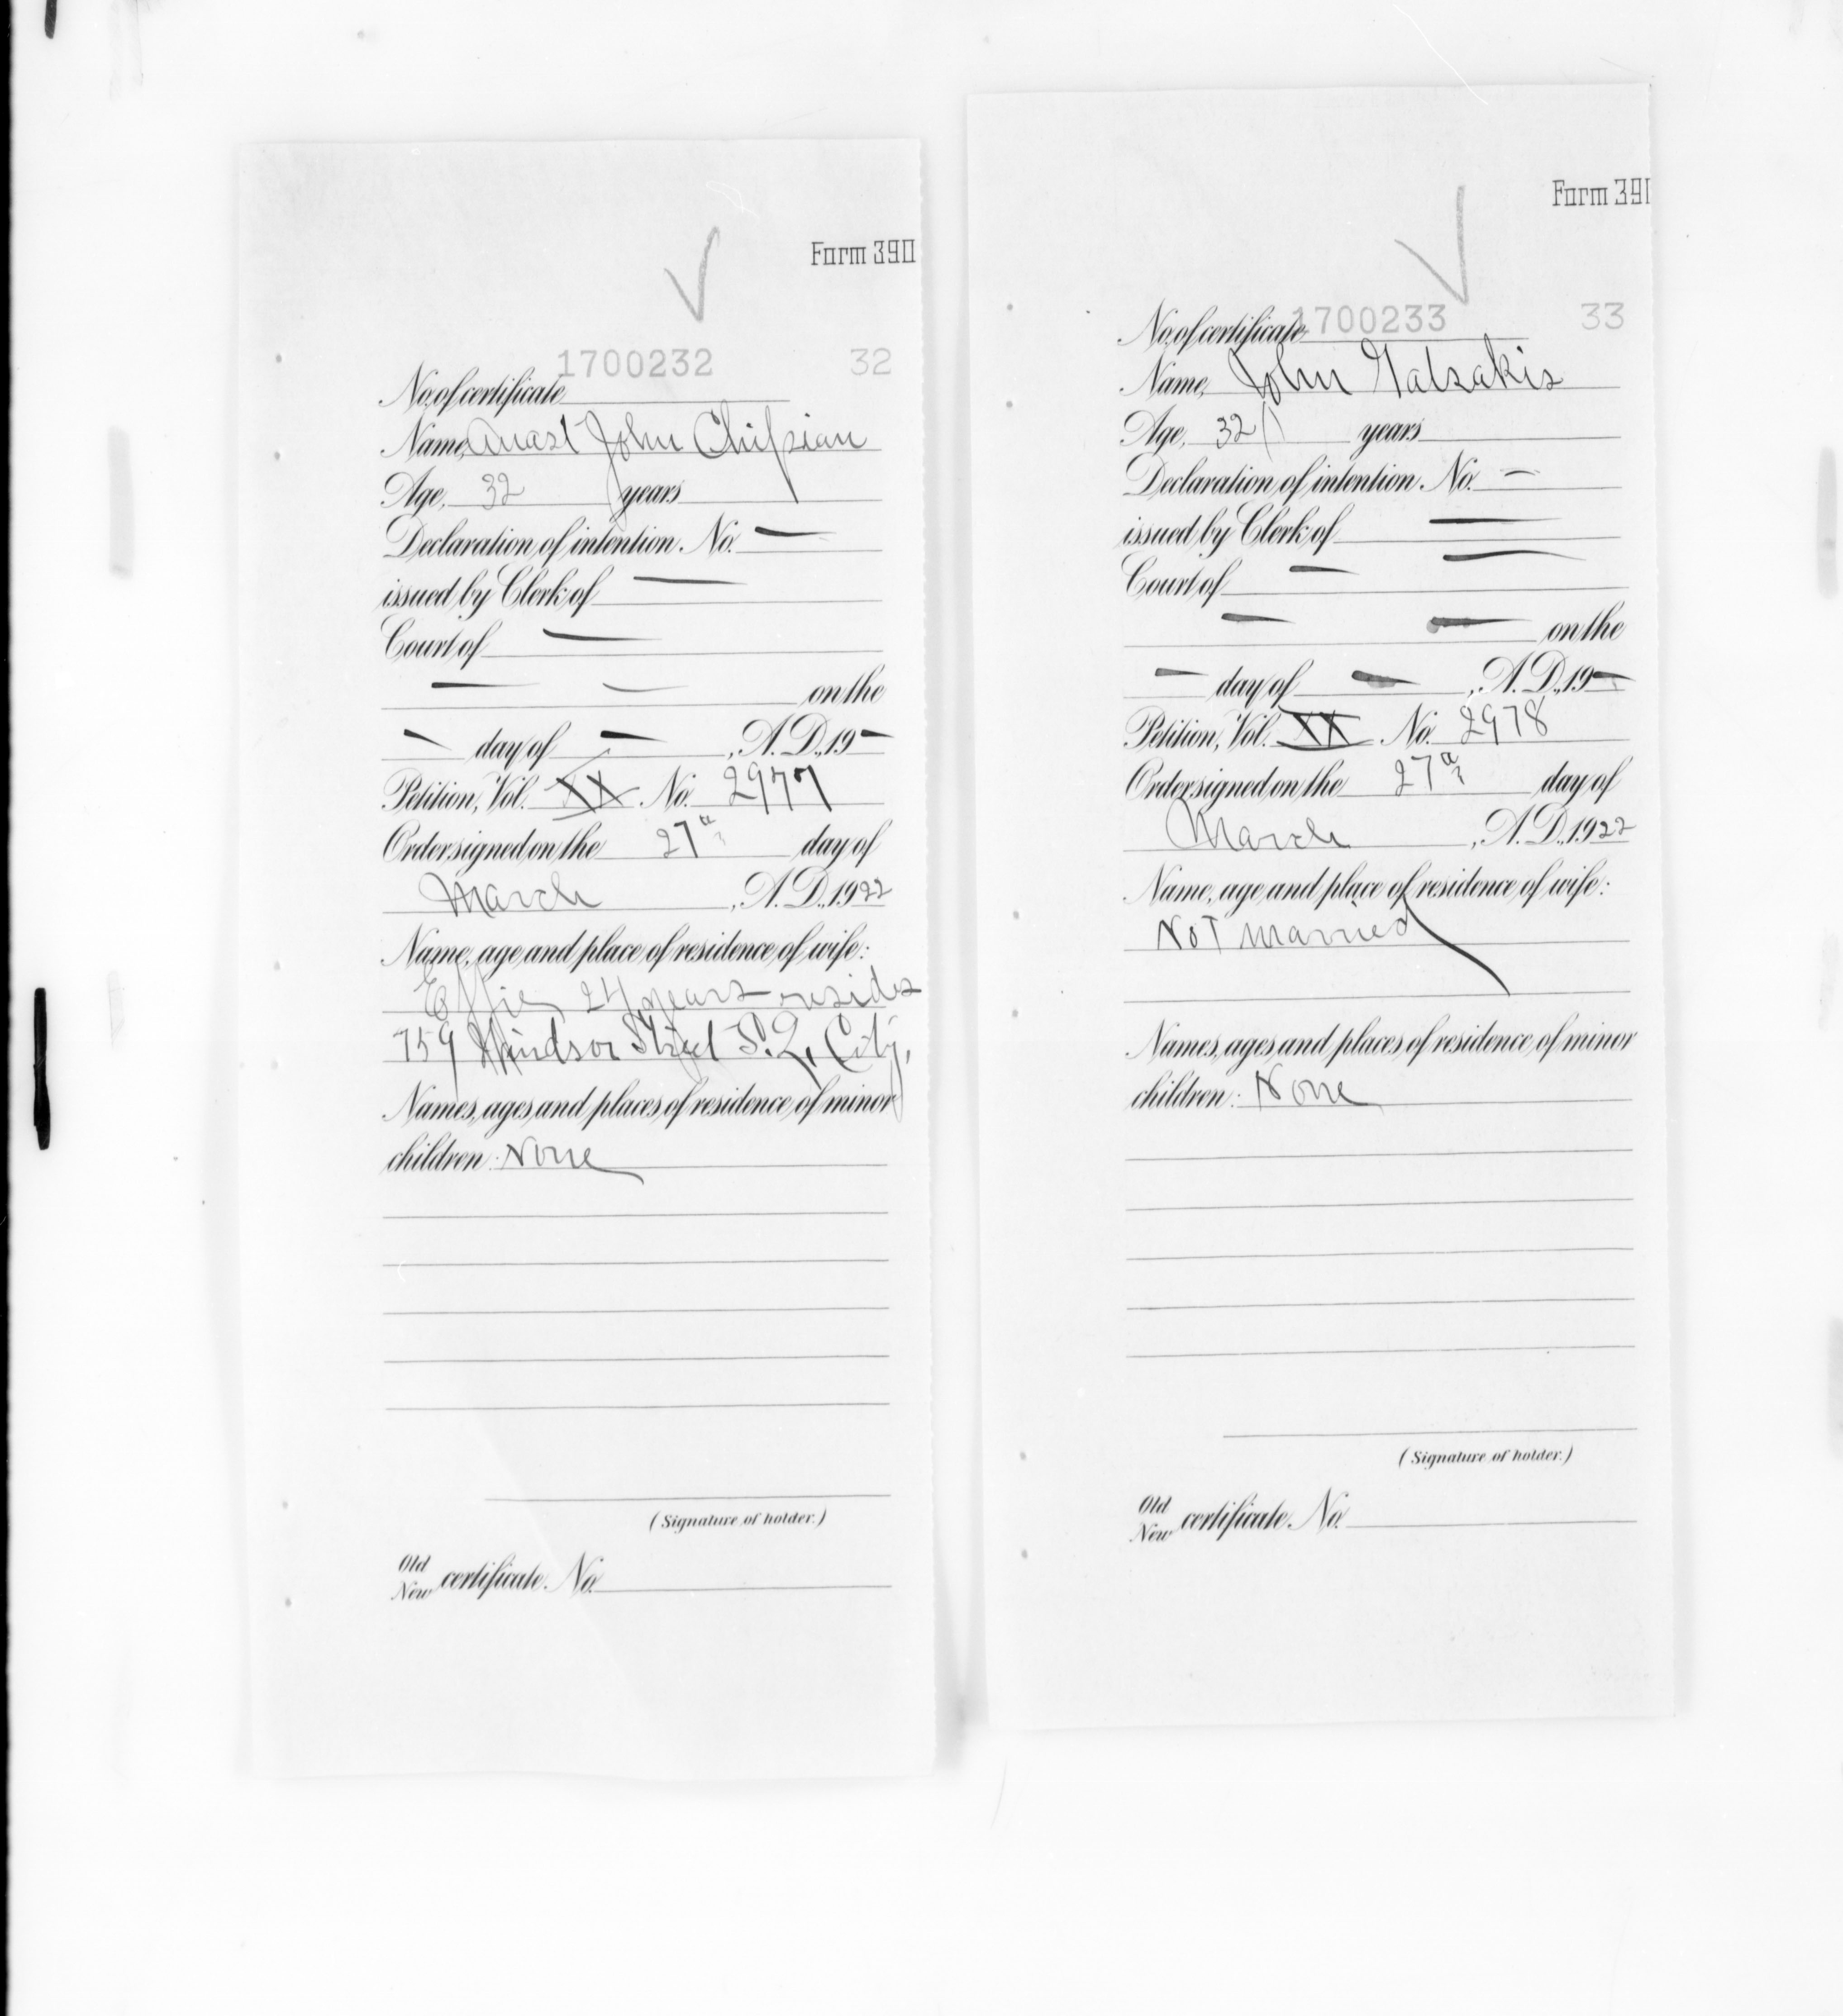 Form 390
1700232 32
No. of certificate
Name, Anast John Chipian
Age, 32 years
Declaration of intention No. —
issued by Clerk of —
Court of —
— — on the
— day of —, A.D., 19—
Petition, Vol. XX No. 2977
Order signed on the 27th day of
March, A.D., 1922
Name, age and place of residence of wife:
Effie, 24 years resides
759 Windsor Street S.L. City,
Names, ages, and places of residence of minor
children: None
(Signature of holder.)
Old
New certificate No.
Form 391
No. of certificate 1700233 33
Name, John Galzakis
Age, 32 years
Declaration of intention No. —
issued by Clerk of —
Court of — —
— — on the
— day of —, A.D., 19—
Petition, Vol. XX No. 2978
Order signed on the 27th day of
March, A.D., 1922
Name, age and place of residence of wife:
Not Married
Names, ages, and places of residence of minor
children: None
(Signature of holder.)
Old
New certificate No.